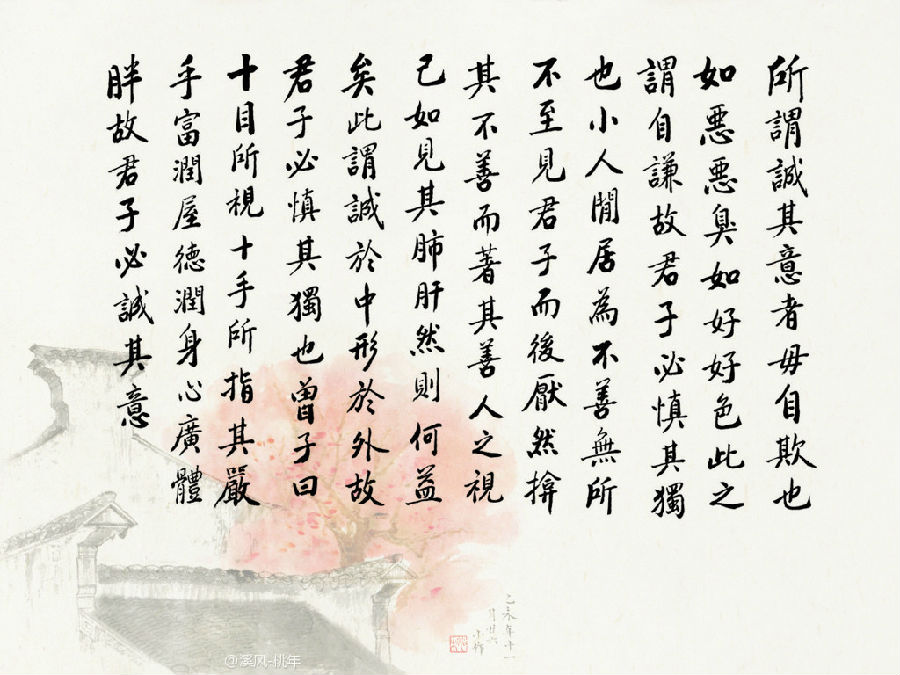 所謂誠其意者毋自欺也
如惡惡臭如好好色此之
謂自謙故君子必慎其獨
也小人閒居為不善無所
不至見君子而後厭然揜
其不善而著其善人之視
己如見其肺肝然則何益
矣此謂誠於中形於外故
君子必慎其獨也曾子曰
十目所視十手所指其嚴
乎富潤屋德潤身心廣體
胖故君子必誠其意
@溪风-桃年